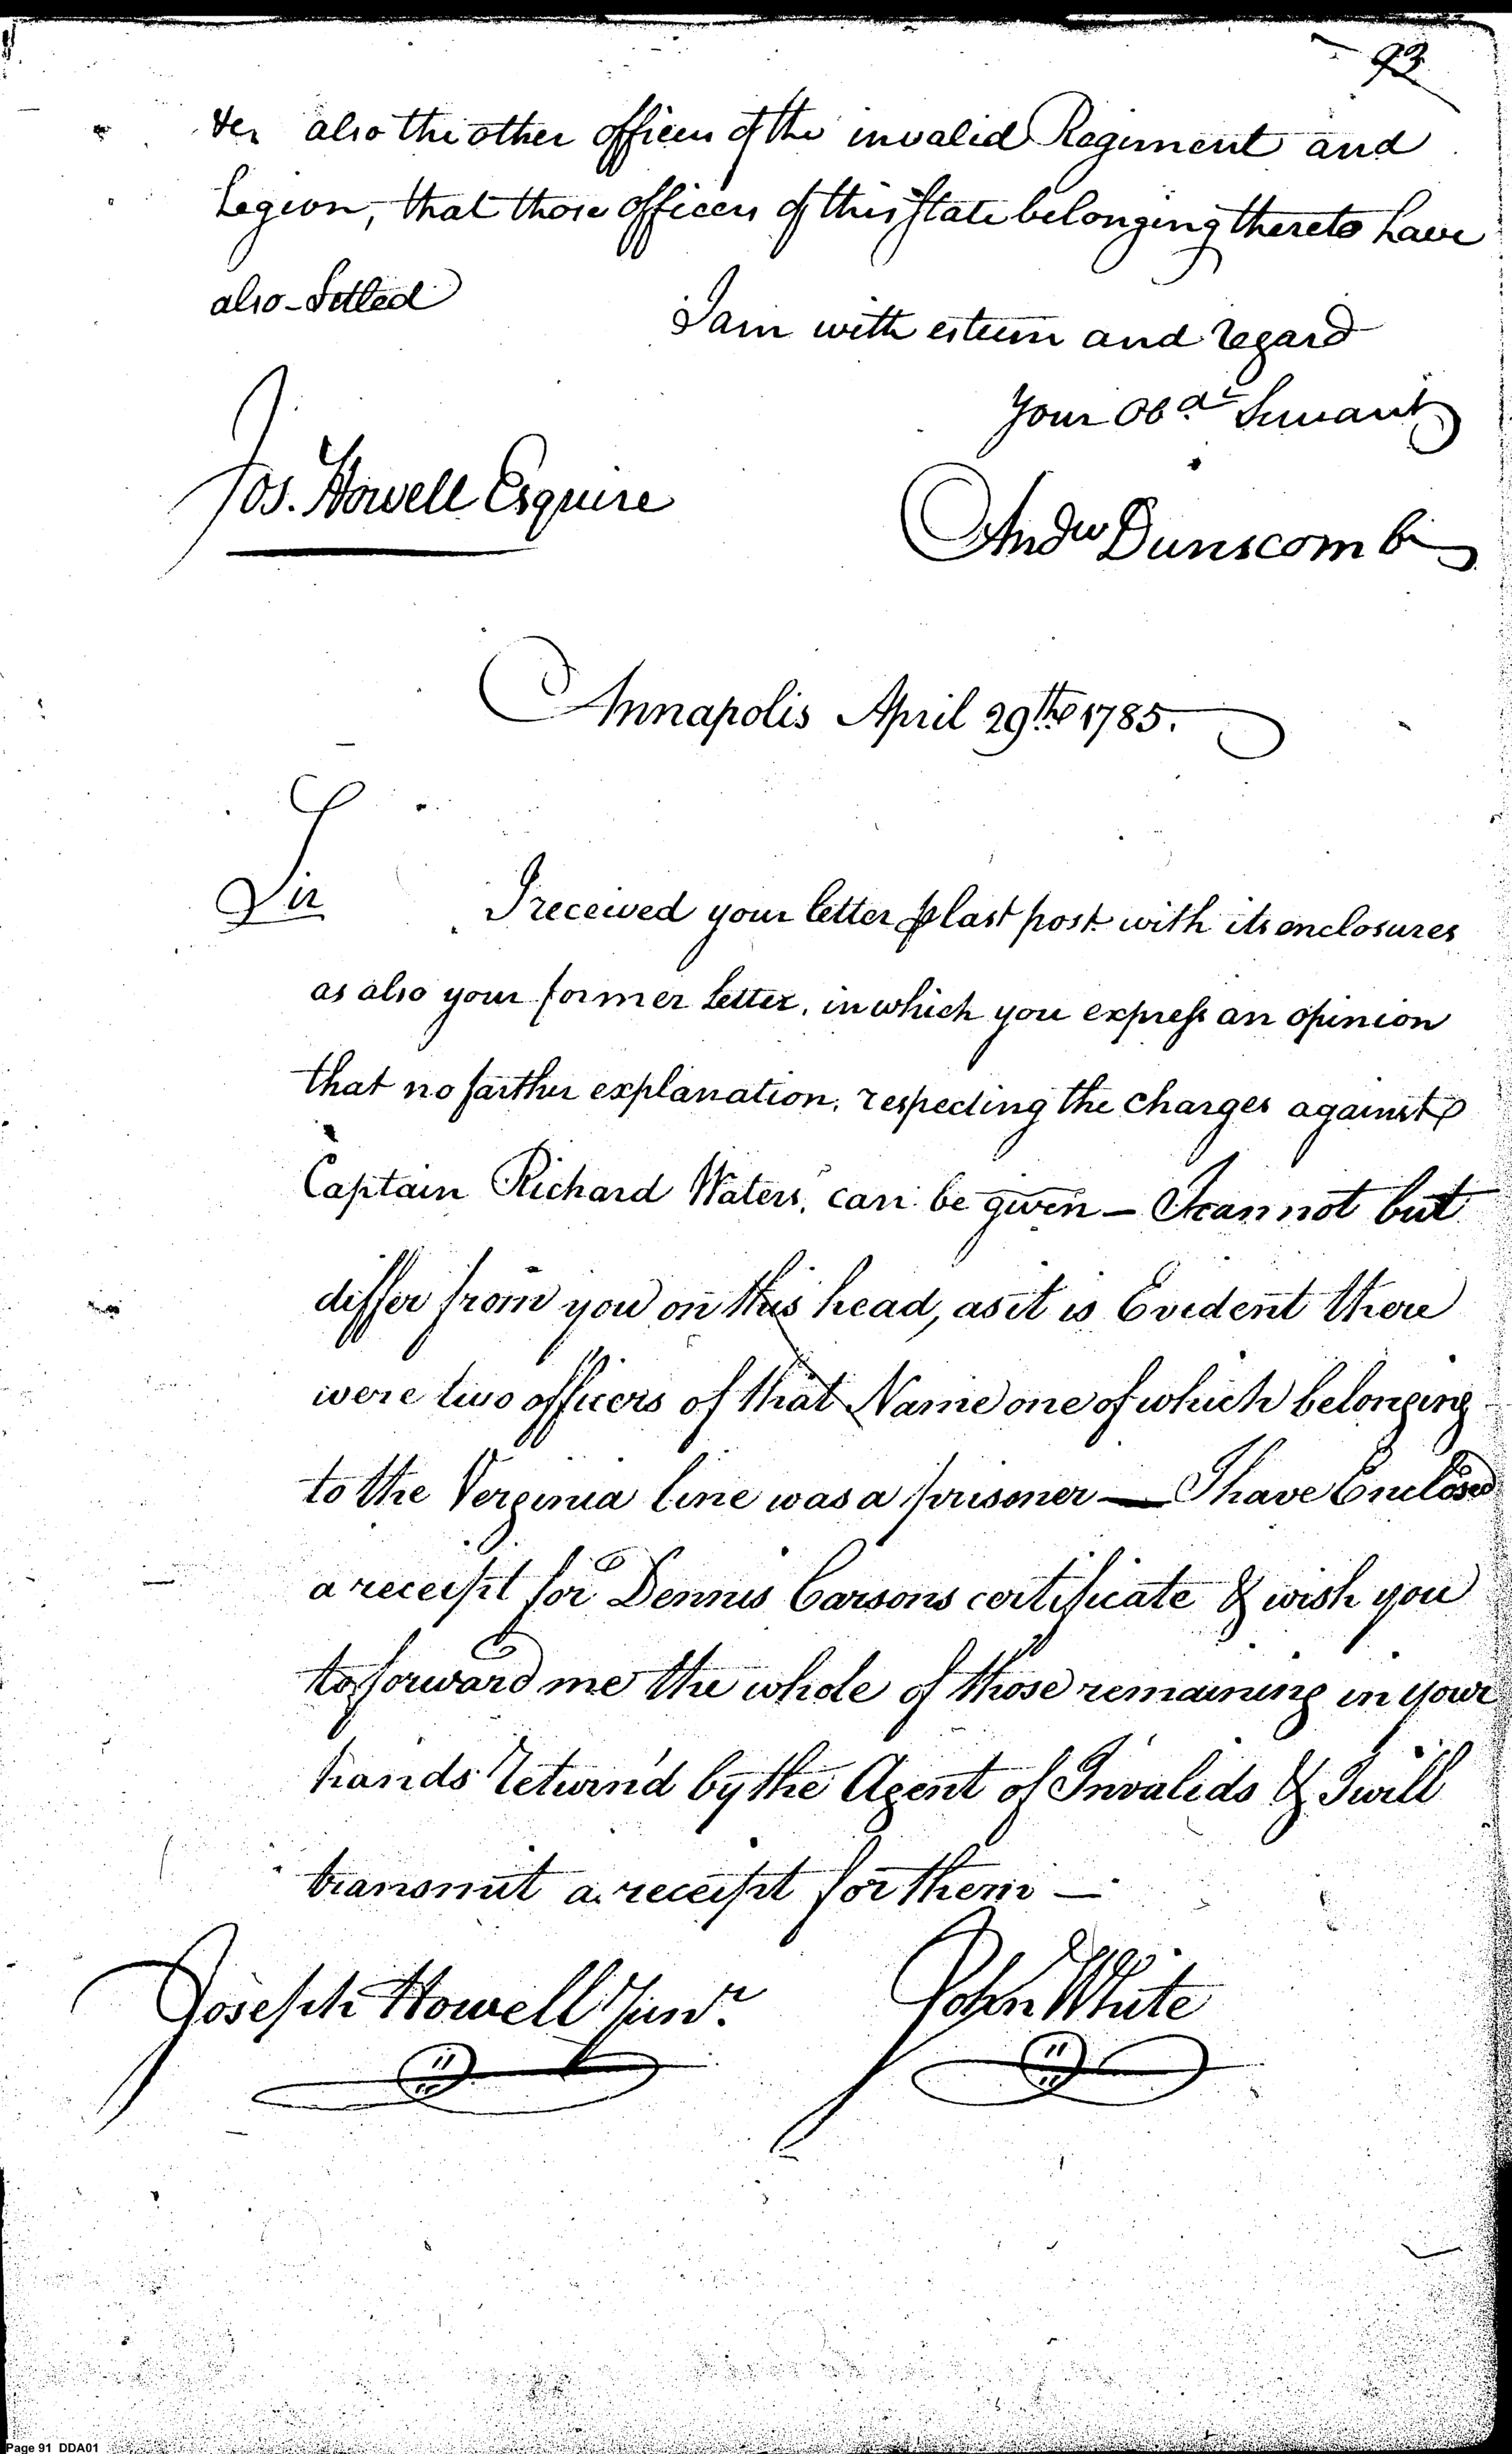 93
ter also the other officers of the invalid Regiment and
Legion, that those officers of this State belonging thereto have
also Setled
I am with esteem and regard
Your Obdt Servant
Jos. Howell Esquire
Andw Dunscomb
Annapolis April 29th 1785.
Sir
I received your letter ⅌ last post with its enclosures
as also your former Letter, in which you express an opinion
that no farther explanation, respecting the charges against
Captain Richard Waters, can be given — I cannot but
differ from you on this head, as it is Evident there
were two officers of that Name one of which belonging
to the Verginia line was a prisoner — I have Enclosed
a receipt for Dennis Carsons certificate & wish you
to forward me the whole of those remaining in your
hands Return'd by the Agent of Invalids & I will
transmit a receipt for them —
Joseph Howell Junr.
John White
Page 91 DDA01